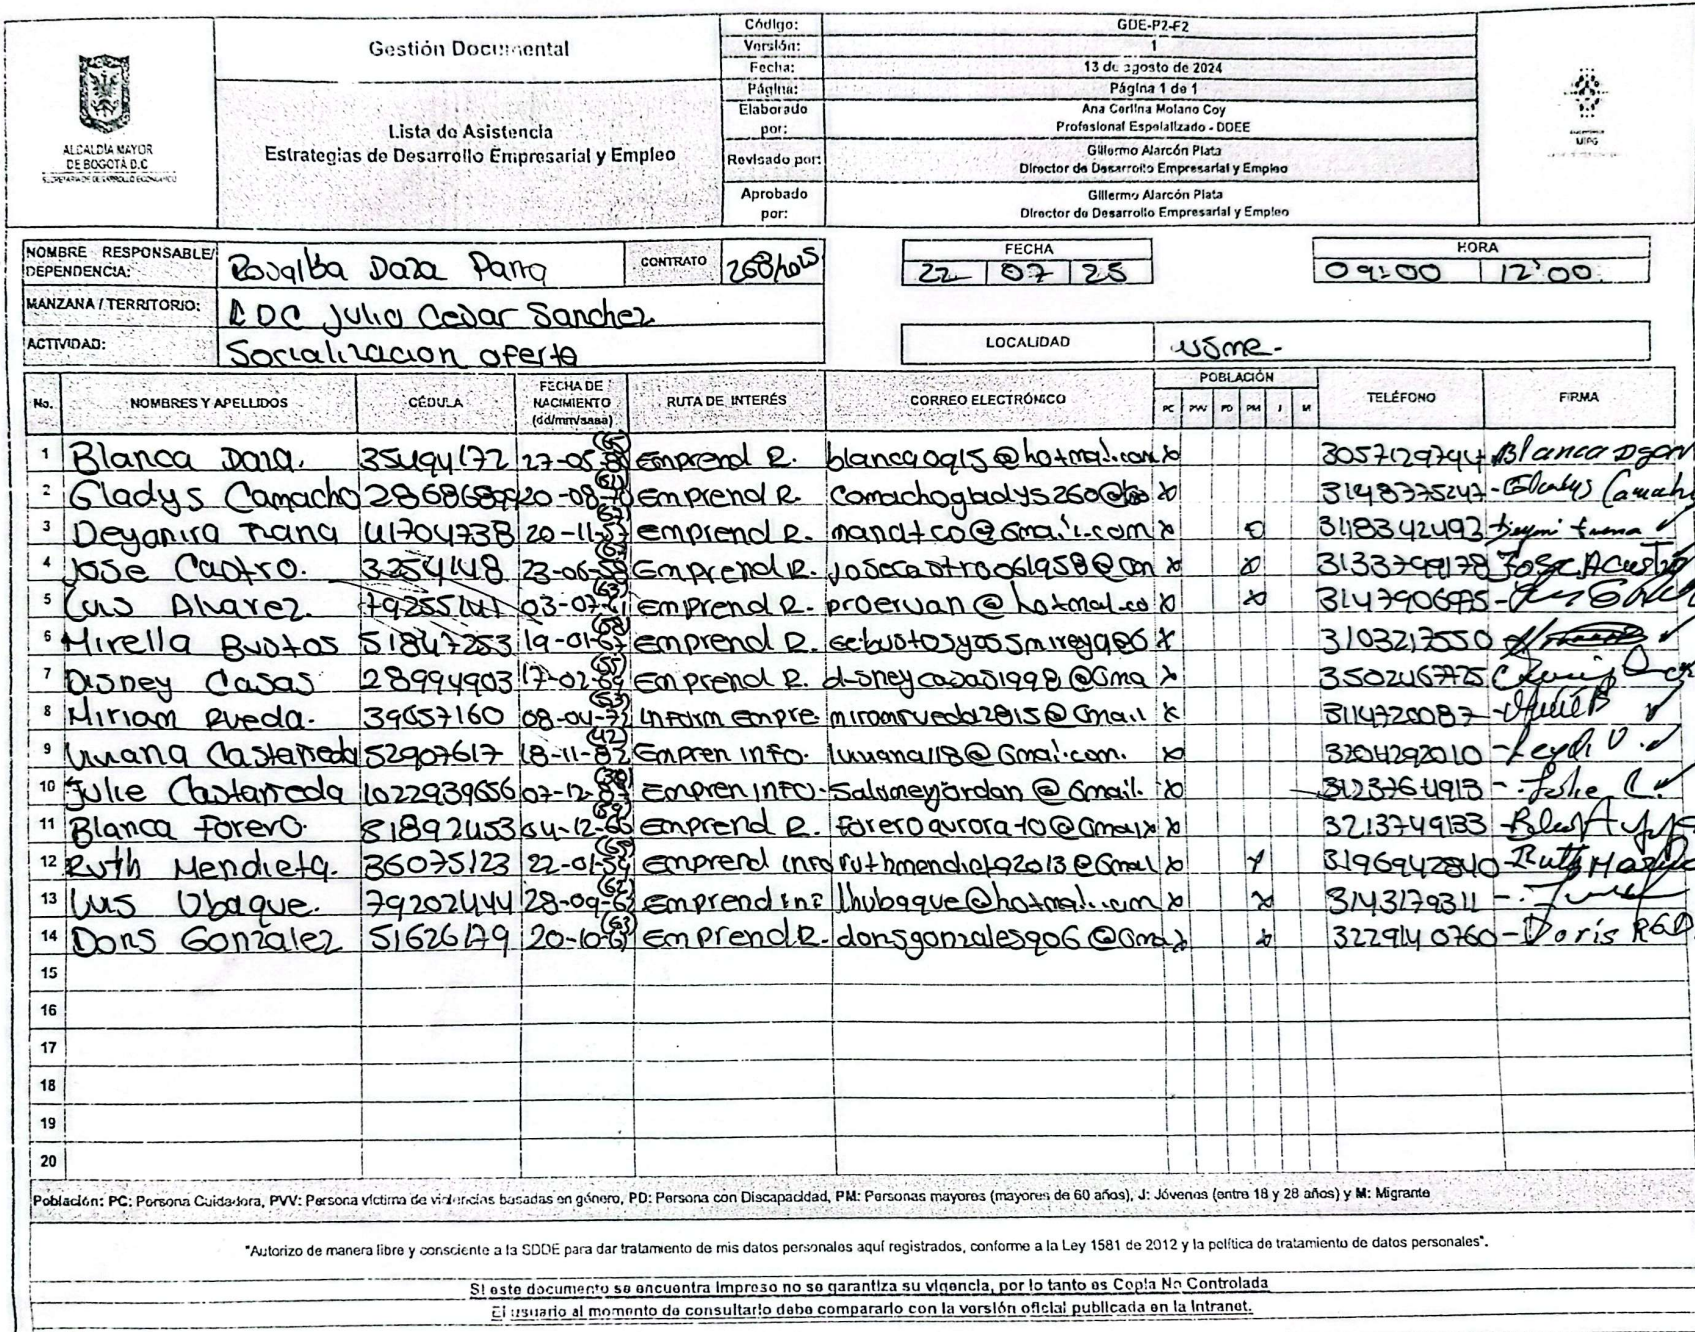 ALCALDÍA MAYOR
DE BOGOTÁ D.C.
SECRETARÍA DE DESARROLLO ECONÓMICO
Gestión Documental
Lista de Asistencia
Estrategias de Desarrollo Empresarial y Empleo
Código: GDE-P2-F2
Versión: 1
Fecha: 13 de agosto de 2024
Página: Página 1 de 1
Elaborado por: Ana Carlina Molano Coy
Profesional Espolalizado - DDEE
Revisado por: Gillermo Alarcón Plata
Director de Desarrollo Empresarial y Empleo
Aprobado por: Gillermo Alarcón Plata
Director de Desarrollo Empresarial y Empleo
MIPG
NOMBRE RESPONSABLE/ DEPENDENCIA: Rosalba Daza Parra CONTRATO 268/2025 FECHA 22 07 25 HORA 09:00 12:00
MANZANA / TERRITORIO: CDC Julio Cesar Sanchez
ACTIVIDAD: Socializacion oferta LOCALIDAD Usme.
No. NOMBRES Y APELLIDOS CÉDULA FECHA DE NACIMIENTO (dd/mm/aaaa) RUTA DE INTERÉS CORREO ELECTRÓNICO POBLACIÓN PC PVV PD PM J M TELÉFONO FIRMA
1 Blanca Daza. 35494172 27-05 Emprend R. blancaoq15@hotmail.com x 3057129744 Blanca
2 Gladys Camacho 20-08 Emprend R. camachogladys260@ x 3148375247 - Gladys Camacho
3 Deyanira Triana 41704738 20-11-57 emprend R. x 3118342492
4 Jose Castro. 3254148 23-06-58 Emprend R. josecastro061958@Gm x x 3133799178 Jose A Castro
5 Luis Alvarez. 79255141 03-07-61 emprend R. proervan@hotmal.co x x 3147906975 -
6 Mirella Bustos 51847253 19-01-67 emprend R. x 3103217550
7 Disney Casas 28994903 17-02 Emprend R. disneycasas1998@Gma x 3502467725
8 Miriam Rueda. 39657160 08-04 Inform empre x 3114720087 -
9 Castañeda 52907617 18-11-82 Empren INFO. x 3204292010 - Leydi V.
10 Julie Castañeda 1022939656 07-12 Empren INFO. Salomeyjordan@Gmail. x 3123764913 - Julie C.
11 Blanca Forero. 51892453 04-12-66 Emprend R. foreroaurora10@Gmai x 3213749133
12 Ruth Mendieta. 36075123 22-01-59 emprend info ruthmendieta92013@Gmail x x 3196942840 - Ruth
13 Luis Ubaque. 79202444 28-09 emprend inf lhubaque@hotmail.com x x 3143179311 -
14 Doris Gonzalez 51626179 20-10 Emprend R. dorisgonzales906@Gma x x 3229140760 - Doris
15
16
17
18
19
20
Población: PC: Persona Cuidadora, PVV: Persona víctima de violencias basadas en género, PD: Persona con Discapacidad, PM: Personas mayores (mayores de 60 años), J: Jóvenes (entre 18 y 28 años) y M: Migrante
"Autorizo de manera libre y consciente a la SDDE para dar tratamiento de mis datos personales aquí registrados, conforme a la Ley 1581 de 2012 y la política de tratamiento de datos personales".
Si este documento se encuentra Impreso no se garantiza su vigencia, por lo tanto es Copia No Controlada
El usuario al momento de consultarlo debe compararlo con la versión oficial publicada en la Intranet.